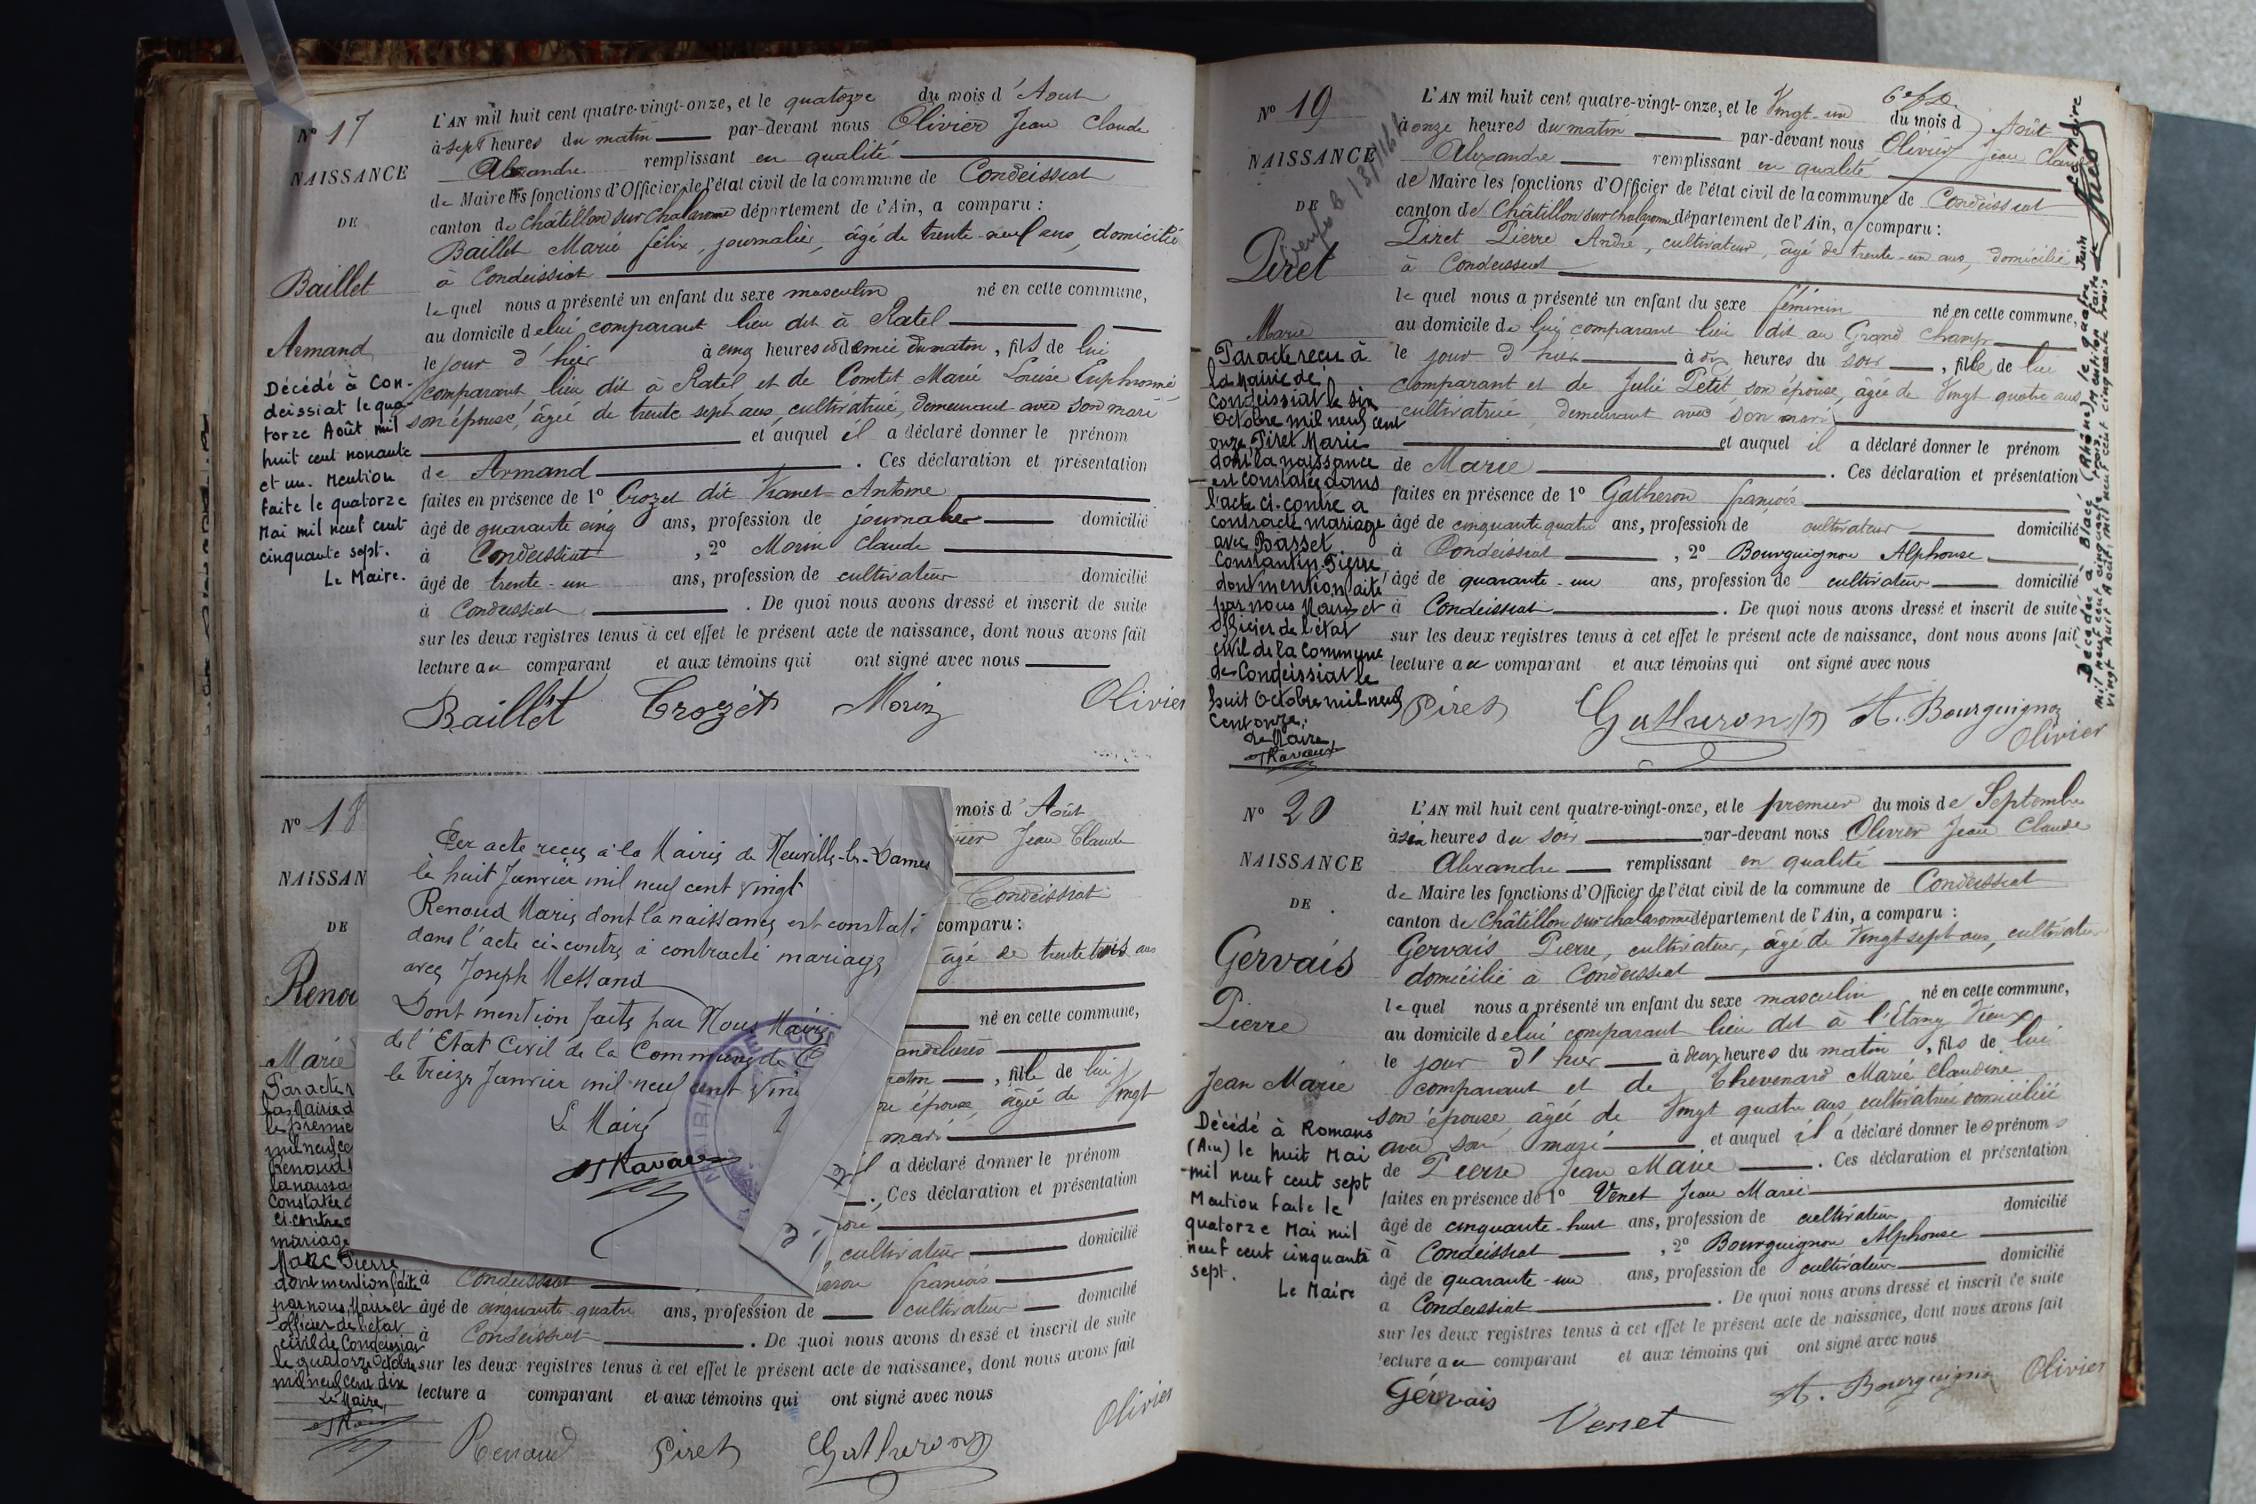 N° 17
NAISSANCE
DE
Baillet
Armand
Décédé à Con-
deissiat le qua-
torze Août mil
huit cent nonante
et un. Mention
faite le quatorze
Mai mil neuf cent
cinquante sept.
Le Maire.
L'AN mil huit cent quatre-vingt-onze, et le quatorze du mois d'Août
à sept heures du matin par-devant nous Olivier Jean Claude
Alexandre remplissant en qualité
de Maire les fonctions d'Officier de l'état civil de la commune de Condeissiat
canton de Châtillon sur Chalaronne département de l'Ain, a comparu :
Baillet Marie félix, journalier, âgé de trente-neuf ans, domicilié
à Condeissiat
lequel nous a présenté un enfant du sexe masculin né en cette commune,
au domicile de lui comparant lieu dit à Ratel
le jour d'hier à cinq heures et demie du matin, fils de lui
comparant lieu dit à Ratel, et de Comtet Marie Louise Euphronie
son épouse, âgée de trente sept ans, cultivatrice, demeurant avec son mari
et auquel il a déclaré donner le prénom
de Armand . Ces déclaration et présentation
faites en présence de 1° Crozet dit Antoine
âgé de quarante cinq ans, profession de journalier domicilié
à Condeissiat , 2° Morin Claude
âgé de trente-un ans, profession de cultivateur domicilié
à Condeissiat . De quoi nous avons dressé et inscrit de suite
sur les deux registres tenus à cet effet le présent acte de naissance, dont nous avons fait
lecture au comparant et aux témoins qui ont signé avec nous
Baillet Crozet Morin Olivier
N° 18
NAISSAN
DE
Renou
Marie
Par acte r
la Mairie d
le premie
mil neuf ce
Renoud
la naissa
constatée d
ci-contre a
mariage
Marc Pierre
dont mention faite
par nous Maire et
officier de l'état
civil de Condeissiat
le quatorze Octobre
mil neuf cent dix
Le Maire,
Per acte reçu à la Mairie de Neuville-les-Dames
le huit Janvier mil neuf cent vingt
Renoud Marie dont la naissance est constaté
dans l'acte ci-contre à contracté mariage
avec Joseph Messand
Dont mention faite par Nous Maire
de l'Etat Civil de la Commune de C
le treize Janvier mil neuf cent vin
Le Maire
mois d'Août
vier Jean Claude
Condeissiat
comparu :
âgé de trente trois ans
né en cette commune,
andelières
matin , fille de lui
on épouse, âgée de Vingt
mari
il a déclaré donner le prénom
. Ces déclaration et présentation
cultivateur domicilié
à Condeissiat eron françois
âgé de cinquante quatre ans, profession de cultivateur domicilié
à Condeissiat . De quoi nous avons dressé et inscrit de suite
sur les deux registres tenus à cet effet le présent acte de naissance, dont nous avons fait
lecture a comparant et aux témoins qui ont signé avec nous
Renoud Piret Gatheron Olivier
N° 19
NAISSANCE
DE
Piret
Marie
Par acte reçu à
la Mairie de
Condeissiat le six
Octobre mil neuf cent
onze Piret Marie
dont la naissance
est constatée dans
l'acte ci-contre a
contracté mariage
avec Basset
Constantin Pierre
dont mention faite
par nous Maire et
officier de l'état
civil de la Commune
de Condeissiat le
huit Octobre mil neuf
cent onze.
Le Maire,
L'AN mil huit cent quatre-vingt-onze, et le Vingt-un du mois d'Août
à onze heures du matin par-devant nous Olivier Jean Claude
Alexandre remplissant en qualité
de Maire les fonctions d'Officier de l'état civil de la commune de Condeissiat
canton de Châtillon sur chalaronne département de l'Ain, a comparu :
Piret Pierre André, cultivateur, âgé de trente-un ans, domicilié
à Condeissiat
lequel nous a présenté un enfant du sexe féminin né en cette commune,
au domicile de lui comparant lieu dit au Grand Champ
le jour d'hier à dix heures du soir , fille de lui
comparant et de Julie Petit son épouse, âgée de Vingt quatre ans
cultivatrice, demeurant avec son mari
et auquel il a déclaré donner le prénom
de Marie . Ces déclaration et présentation
faites en présence de 1° Gatheron françois
âgé de cinquante quatre ans, profession de cultivateur domicilié
à Condeissiat , 2° Bourguignon Alphonse
âgé de quarante-un ans, profession de cultivateur domicilié
à Condeissiat . De quoi nous avons dressé et inscrit de suite
sur les deux registres tenus à cet effet le présent acte de naissance, dont nous avons fait
lecture au comparant et aux témoins qui ont signé avec nous
Piret Gatheron A. Bourguignon
Olivier
Décédée à Blacé (Rhône) le quatre Juin
mil neuf cent cinquante trois. Mention faite le
vingt huit Août mil neuf cent cinquante trois
Le Maire
N° 20
NAISSANCE
DE
Gervais
Pierre
Jean Marie
Décédé à Romans
(Ain) le huit Mai
mil neuf cent sept
Mention faite le
quatorze Mai mil
neuf cent cinquante
sept.
Le Maire
L'AN mil huit cent quatre-vingt-onze, et le premier du mois de Septembre
à six heures du soir par-devant nous Olivier Jean Claude
Alexandre remplissant en qualité
de Maire les fonctions d'Officier de l'état civil de la commune de Condeissiat
canton de Châtillon sur chalaronne département de l'Ain, a comparu :
Gervais Pierre, cultivateur, âgé de Vingt sept ans, cultivateur
domicilié à Condeissiat
lequel nous a présenté un enfant du sexe masculin né en cette commune,
au domicile de lui comparant lieu dit à l'Etang Vieux
le jour d'hier à deux heures du matin , fils de lui
comparant et de Thevenard Marie Claudine
son épouse âgée de Vingt quatre ans, cultivatrice domiciliée
avec son mari et auquel il a déclaré donner les prénoms
de Pierre Jean Marie . Ces déclaration et présentation
faites en présence de 1° Venet Jean Marie
âgé de cinquante-huit ans, profession de cultivateur domicilié
à Condeissiat , 2° Bourguignon Alphonse
âgé de quarante-un ans, profession de cultivateur domicilié
à Condeissiat . De quoi nous avons dressé et inscrit de suite
sur les deux registres tenus à cet effet le présent acte de naissance, dont nous avons fait
lecture au comparant et aux témoins qui ont signé avec nous
Gervais Venet A. Bourguignon Olivier